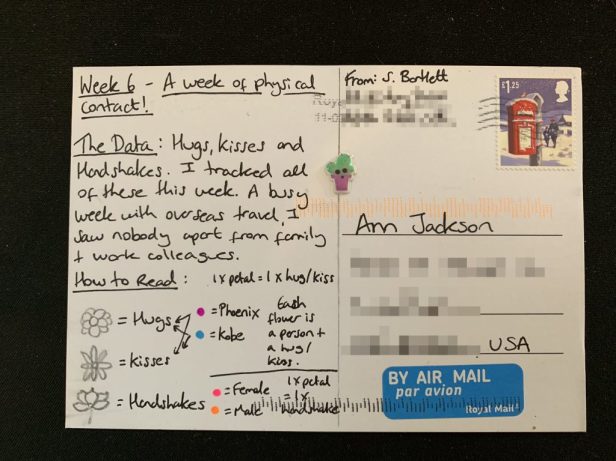 Week 6 - A week of physical
contact!
The Data: Hugs, kisses and
Handshakes. I tracked all
of these this week. A busy
week with overseas travel, I
saw nobody apart from family
+ work colleagues.
How to Read: 1x petal = 1x hug/kiss
= Hugs
= kisses
= Handshakes
= Phoenix
= Kobe
Each
flower is
a person +
a hug/
kiss.
= Female
= Male
1x petal
= 1x
handshake
From: S. Bartlett
Roya
11-0
£1.25
Ann Jackson
USA
BY AIR MAIL
par avion
Royal Mail